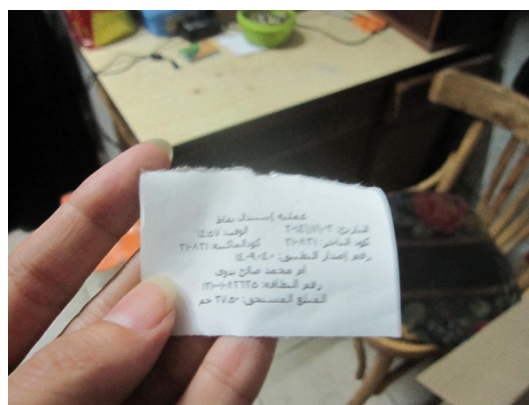 عملية إستبدال نقاط
التاريخ: ٢٠١٤/١١/٠٢ الوقت: ١٤:٥٧
كود التاجر: ٢١٠٨٢١ كود الماكينة: ٢١٠٨٢١
رقم إصدار التطبيق: ١٤٠٩٠٤٠
ام محمد صالح بدوى
رقم البطاقة:
المبلغ المستحق: ٢٧.٥٠ جم